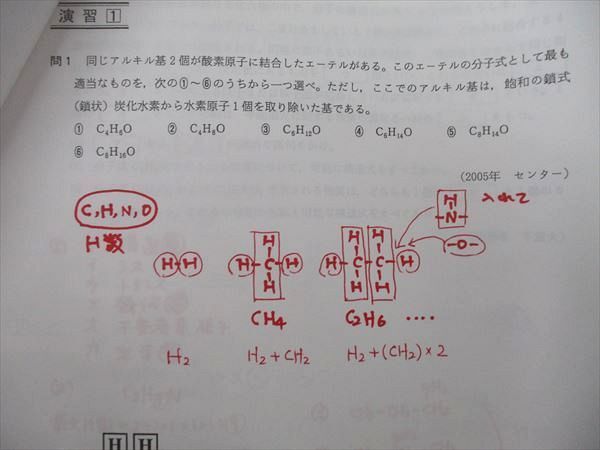 演習 1
問1 同じアルキル基2個が酸素原子に結合したエーテルがある。このエーテルの分子式として最も
適当なものを，次の①～⑥のうちから一つ選べ。ただし，ここでのアルキル基は，飽和の鎖式
(鎖状) 炭化水素から水素原子1個を取り除いた基である。
① C₄H₆O ② C₄H₈O ③ C₆H₁₂O ④ C₆H₁₄O ⑤ C₈H₁₄O
⑥ C₈H₁₆O
(2005年 センター)
C,H,N,O
H数
H-H
H
H-C-H
H
H H
H-C-C-H
H H
H
-N-
入れて
-O-
CH4
C2H6 ....
H2
H2+CH2
H2+(CH2)×2
H H